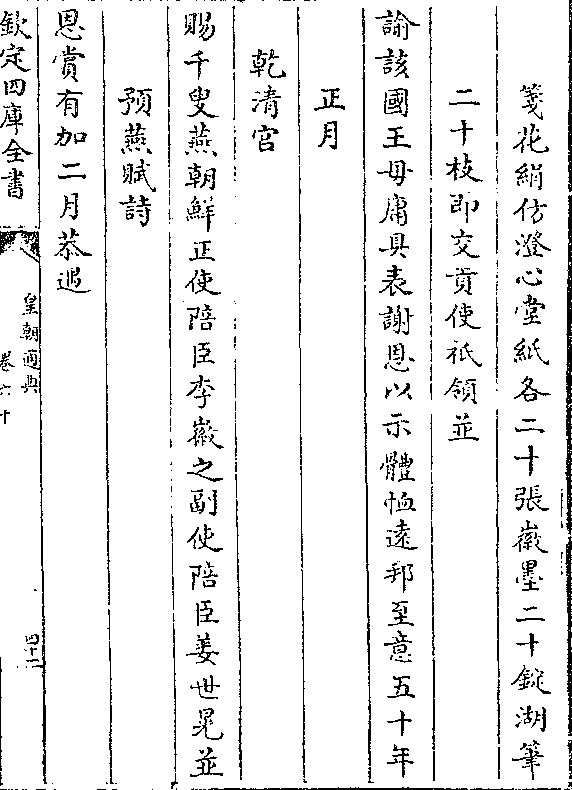 箋花絹仿澄心堂紙各二十張徽墨二十錠湖筆
二十枝即交貢使祗領並
諭該國王毋庸具表謝恩以示體恤遠邦至意五十年
正月
乾清宮
賜千叟燕朝鮮正使陪臣李徽之副使陪臣姜世晃並
預燕賦詩
恩賞有加二月恭遇
欽定四庫全書
皇朝通典
卷六十
四十二